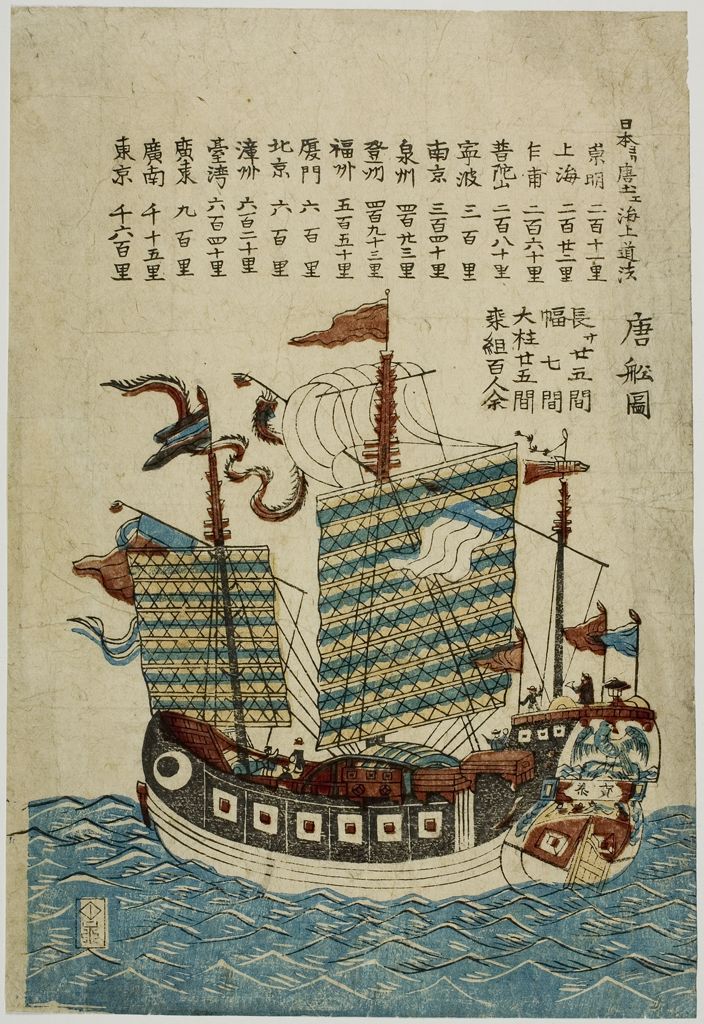 日本ヨリ唐土エ海上道法
崇明 二百十一里
上海 二百廿二里
乍甫 二百六十里
普陀山 二百八十里
寧波 三百里
南京 三百四十里
泉州 四百廿三里
登州 四百九十三里
福州 五百五十里
厦門 六百里
北京 六百里
漳州 六百二十里
臺湾 六百四十里
廣東 九百里
廣南 千十五里
東京 千六百里
唐船圖
長サ廿五間
幅 七間
大柱廿五間
乗組百人余